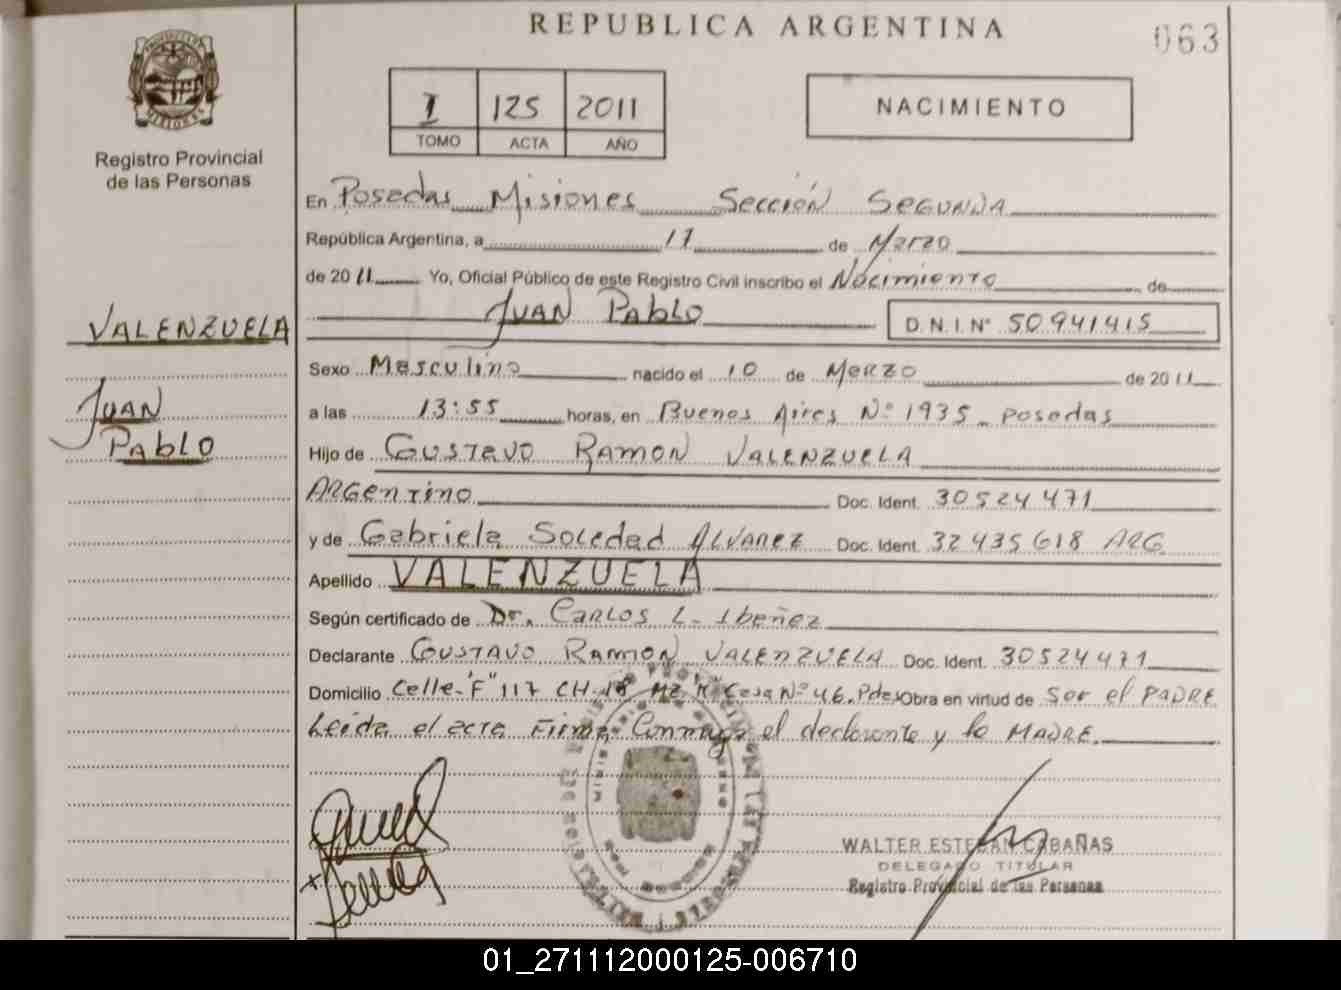 REPUBLICA ARGENTINA
063
I 125 2011
TOMO ACTA AÑO
NACIMIENTO
Registro Provincial
de las Personas
En Posadas Misiones Sección SEGUNDA
República Argentina, a 11 de Marzo
de 2011 Yo, Oficial Público de este Registro Civil inscribo el Nacimiento de
JUAN Pablo D.N.I.Nº 50941415
VALENZUELA
JUAN
PABLO
Sexo Masculino nacido el 10 de Marzo de 2011
a las 13:55 horas, en Buenos Aires Nº 1935 - posadas
Hijo de GUSTAVO RAMON VALENZUELA
ARGentino Doc. Ident. 30524471
y de Gabriela Soledad ALVAREZ Doc. Ident. 32435618 ARG
Apellido VALENZUELA
Según certificado de Dr. CARLOS L. Ibañez
Declarante GUSTAVO RAMON VALENZUELA Doc. Ident. 30524471
Domicilio Calle "F" 117 CH. 18 MZ. Casa Nº 46. Pdas Obra en virtud de Ser el PADRE
Leída el acta Firma Conmigo el declarante y la MADRE.
WALTER ESTEBAN CABAÑAS
DELEGADO TITULAR
Registro Provincial de las Personas
01_271112000125-006710